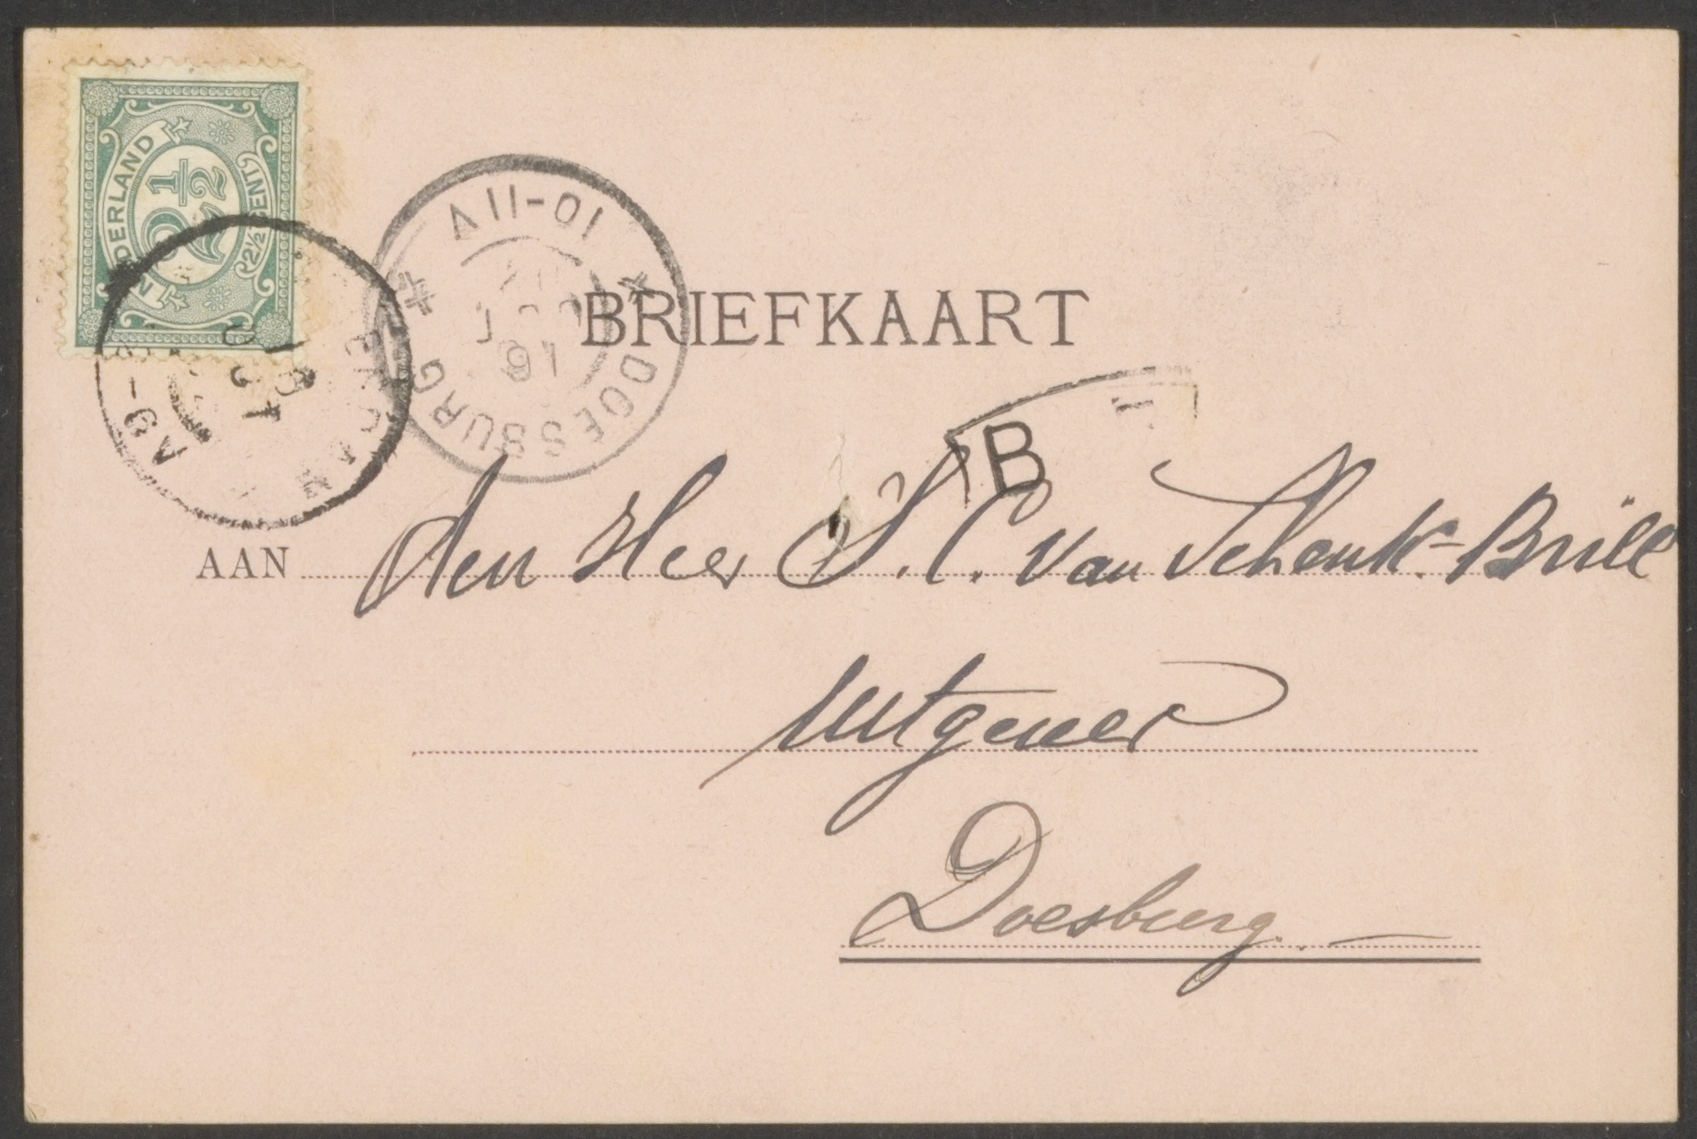 NEDERLAND
2½
2½ CENT
10-11V
DOESBURG
BRIEFKAART
B
AAN den Heer J. C. van Schenk-Brill
Uitgever
Doesburg.